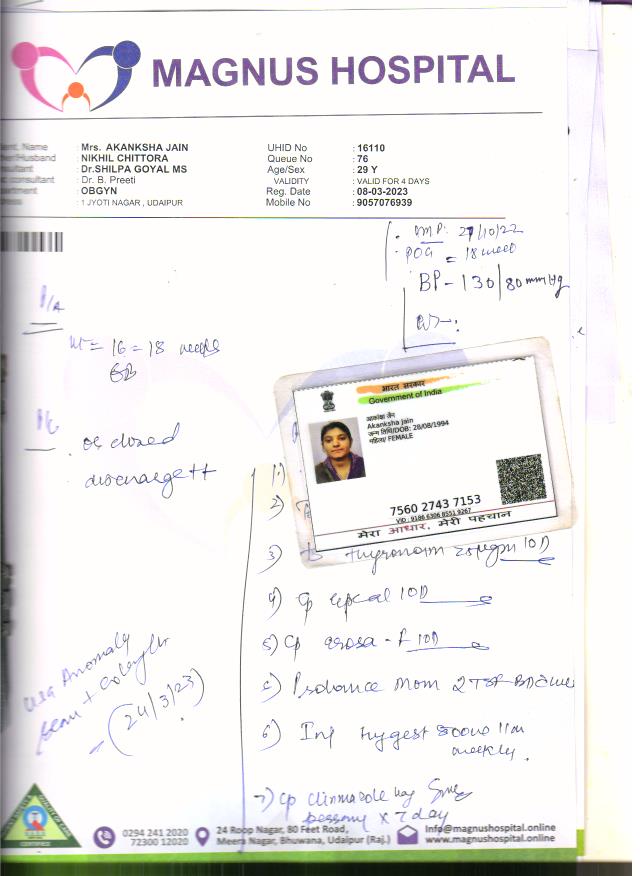 MAGNUS HOSPITAL
ent. Name : Mrs. AKANKSHA JAIN
her/Husband : NIKHIL CHITTORA
sultant : Dr.SHILPA GOYAL MS
consultant : Dr. B. Preeti
artment : OBGYN
ress : 1 JYOTI NAGAR , UDAIPUR
UHID No : 16110
Queue No : 76
Age/Sex : 29 Y
VALIDITY : VALID FOR 4 DAYS
Reg. Date : 08-03-2023
Mobile No : 9057076939
LMP: 27/10/22
POG = 18 week
BP - 130/80 mmHg
P/A
ut = 16 = 18 weeks
os closed
discharge ++
भारत सरकार
Government of India
आकांक्षा जैन
Akanksha jain
जन्म तिथि/DOB: 28/08/1994
महिला/ FEMALE
7560 2743 7153
VID : 9186 6306 8551 9267
मेरा आधार, मेरी पहचान
1)
2)
3) thyronorm 10D
4) Cp 10D
5) Cp -F 10D
6) Mom 2 TSF
6) Inj weekly.
7) Cp 5mg
pessary x 7 day
USG Anomaly
scan +
- (24/3/23)
CERTIFIED
0294 241 2020
72300 12020
24 Roop Nagar, 80 Feet Road,
Meera Nagar, Bhuwana, Udaipur (Raj.)
Info@magnushospital.online
www.magnushospital.online